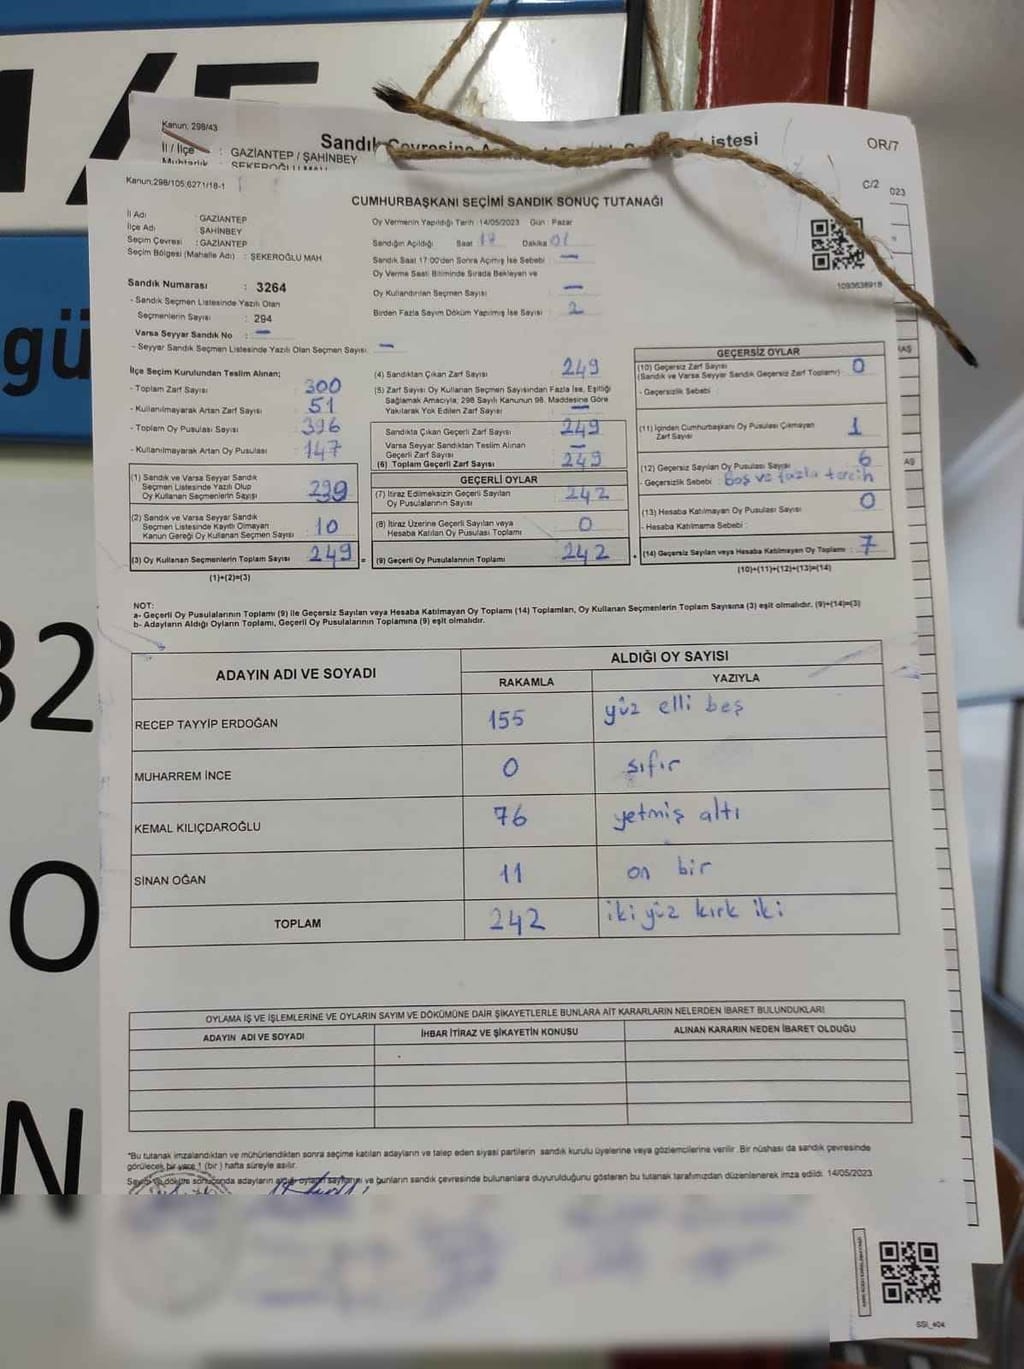 1/5
gü
32
O
N
Kanun: 298/43
Sandık Çevresine Listesi
OR/7
İl / İlçe : GAZİANTEP / ŞAHİNBEY
Muhtarlık : ŞEKEROĞLU MAH
Kanun;298/105;6271/18-1
C/2
023
CUMHURBAŞKANI SEÇİMİ SANDIK SONUÇ TUTANAĞI
İl Adı : GAZİANTEP
İlçe Adı : ŞAHİNBEY
Seçim Çevresi : GAZİANTEP
Seçim Bölgesi (Mahalle Adı) : ŞEKEROĞLU MAH
Oy Vermenin Yapıldığı Tarih : 14/05/2023 Gün : Pazar
Sandığın Açıldığı Saat Dakika 01
Sandık Saat 17:00'den Sonra Açılmış İse Sebebi : —
Oy Verme Saati Bitiminde Sırada Bekleyen ve
Oy Kullandırılan Seçmen Sayısı : —
Birden Fazla Sayım Döküm Yapılmış İse Sayısı : 2
1093638918
Sandık Numarası : 3264
- Sandık Seçmen Listesinde Yazılı Olan
Seçmenlerin Sayısı : 294
Varsa Seyyar Sandık No : —
- Seyyar Sandık Seçmen Listesinde Yazılı Olan Seçmen Sayısı: —
İlçe Seçim Kurulundan Teslim Alınan;
- Toplam Zarf Sayısı : 300
- Kullanılmayarak Artan Zarf Sayısı : 51
- Toplam Oy Pusulası Sayısı : 396
- Kullanılmayarak Artan Oy Pusulası : 147
(1) Sandık ve Varsa Seyyar Sandık
Seçmen Listesinde Yazılı Olup
Oy Kullanan Seçmenlerin Sayısı : 239
(2) Sandık ve Varsa Seyyar Sandık
Seçmen Listesinde Kayıtlı Olmayan
Kanun Gereği Oy Kullanan Seçmen Sayısı : 10
(3) Oy Kullanan Seçmenlerin Toplam Sayısı : 249 =
(1)+(2)=(3)
(4) Sandıktan Çıkan Zarf Sayısı : 249
(5) Zarf Sayısı Oy Kullanan Seçmen Sayısından Fazla İse, Eşitliği
Sağlamak Amacıyla; 298 Sayılı Kanunun 98. Maddesine Göre
Yakılarak Yok Edilen Zarf Sayısı : —
Sandıkta Çıkan Geçerli Zarf Sayısı : 249
Varsa Seyyar Sandıktan Teslim Alınan
Geçerli Zarf Sayısı : —
(6) Toplam Geçerli Zarf Sayısı : 249
GEÇERLİ OYLAR
(7) İtiraz Edilmeksizin Geçerli Sayılan
Oy Pusulalarının Sayısı : 242
(8) İtiraz Üzerine Geçerli Sayılan veya
Hesaba Katılan Oy Pusulası Toplamı : 0
(9) Geçerli Oy Pusulalarının Toplamı : 242 +
GEÇERSİZ OYLAR
(10) Geçersiz Zarf Sayısı : 0
(Sandık ve Varsa Seyyar Sandık Geçersiz Zarf Toplamı)
- Geçersizlik Sebebi :
(11) İçinden Cumhurbaşkanı Oy Pusulası Çıkmayan
Zarf Sayısı : 1
(12) Geçersiz Sayılan Oy Pusulası Sayısı : 6
- Geçersizlik Sebebi : Boş ve fazla tercih
(13) Hesaba Katılmayan Oy Pusulası Sayısı : 0
- Hesaba Katılmama Sebebi :
(14) Geçersiz Sayılan veya Hesaba Katılmayan Oy Toplamı : 7
(10)+(11)+(12)+(13)=(14)
NOT:
a- Geçerli Oy Pusulalarının Toplamı (9) ile Geçersiz Sayılan veya Hesaba Katılmayan Oy Toplamı (14) Toplamları, Oy Kullanan Seçmenlerin Toplam Sayısına (3) eşit olmalıdır. (9)+(14)=(3)
b- Adayların Aldığı Oyların Toplamı, Geçerli Oy Pusulalarının Toplamına (9) eşit olmalıdır.
ADAYIN ADI VE SOYADI ALDIĞI OY SAYISI
RAKAMLA YAZIYLA
RECEP TAYYİP ERDOĞAN 155 yüz elli beş
MUHARREM İNCE 0 sıfır
KEMAL KILIÇDAROĞLU 76 yetmiş altı
SİNAN OĞAN 11 on bir
TOPLAM 242 iki yüz kırk iki
OYLAMA İŞ VE İŞLEMLERİNE VE OYLARIN SAYIM VE DÖKÜMÜNE DAİR ŞİKAYETLERLE BUNLARA AİT KARARLARIN NELERDEN İBARET BULUNDUKLARI
ADAYIN ADI VE SOYADI İHBAR İTİRAZ VE ŞİKAYETİN KONUSU ALINAN KARARIN NEDEN İBARET OLDUĞU
*Bu tutanak imzalandıktan ve mühürlendikten sonra seçime katılan adayların ve talep eden siyasi partilerin sandık kurulu üyelerine veya gözlemcilerine verilir. Bir nüshası da sandık çevresinde
görülecek bir yere 1 (bir) hafta süreyle asılır.
Sayım ve döküm sonucunda adayların aldığı oyların sayısını ve bunların sandık çevresinde bulunanlara duyurulduğunu gösteren bu tutanak tarafımızdan düzenlenerek imza edildi. 14/05/2023
SSİ_404